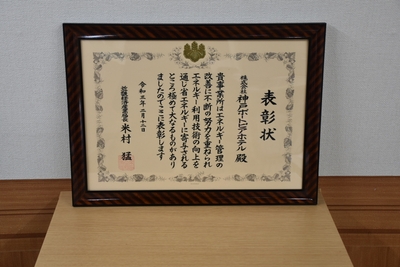 表彰状
株式会社
神戸ポートピアホテル 殿
貴事業所はエネルギー管理の
改善に不断の努力を重ねられ
エネルギー利用技術の向上を
通じ省エネルギーに寄与される
ところ極めて大なるものがあり
ましたのでここに表彰します
令和三年二月十六日
近畿経済産業局長 米村 猛